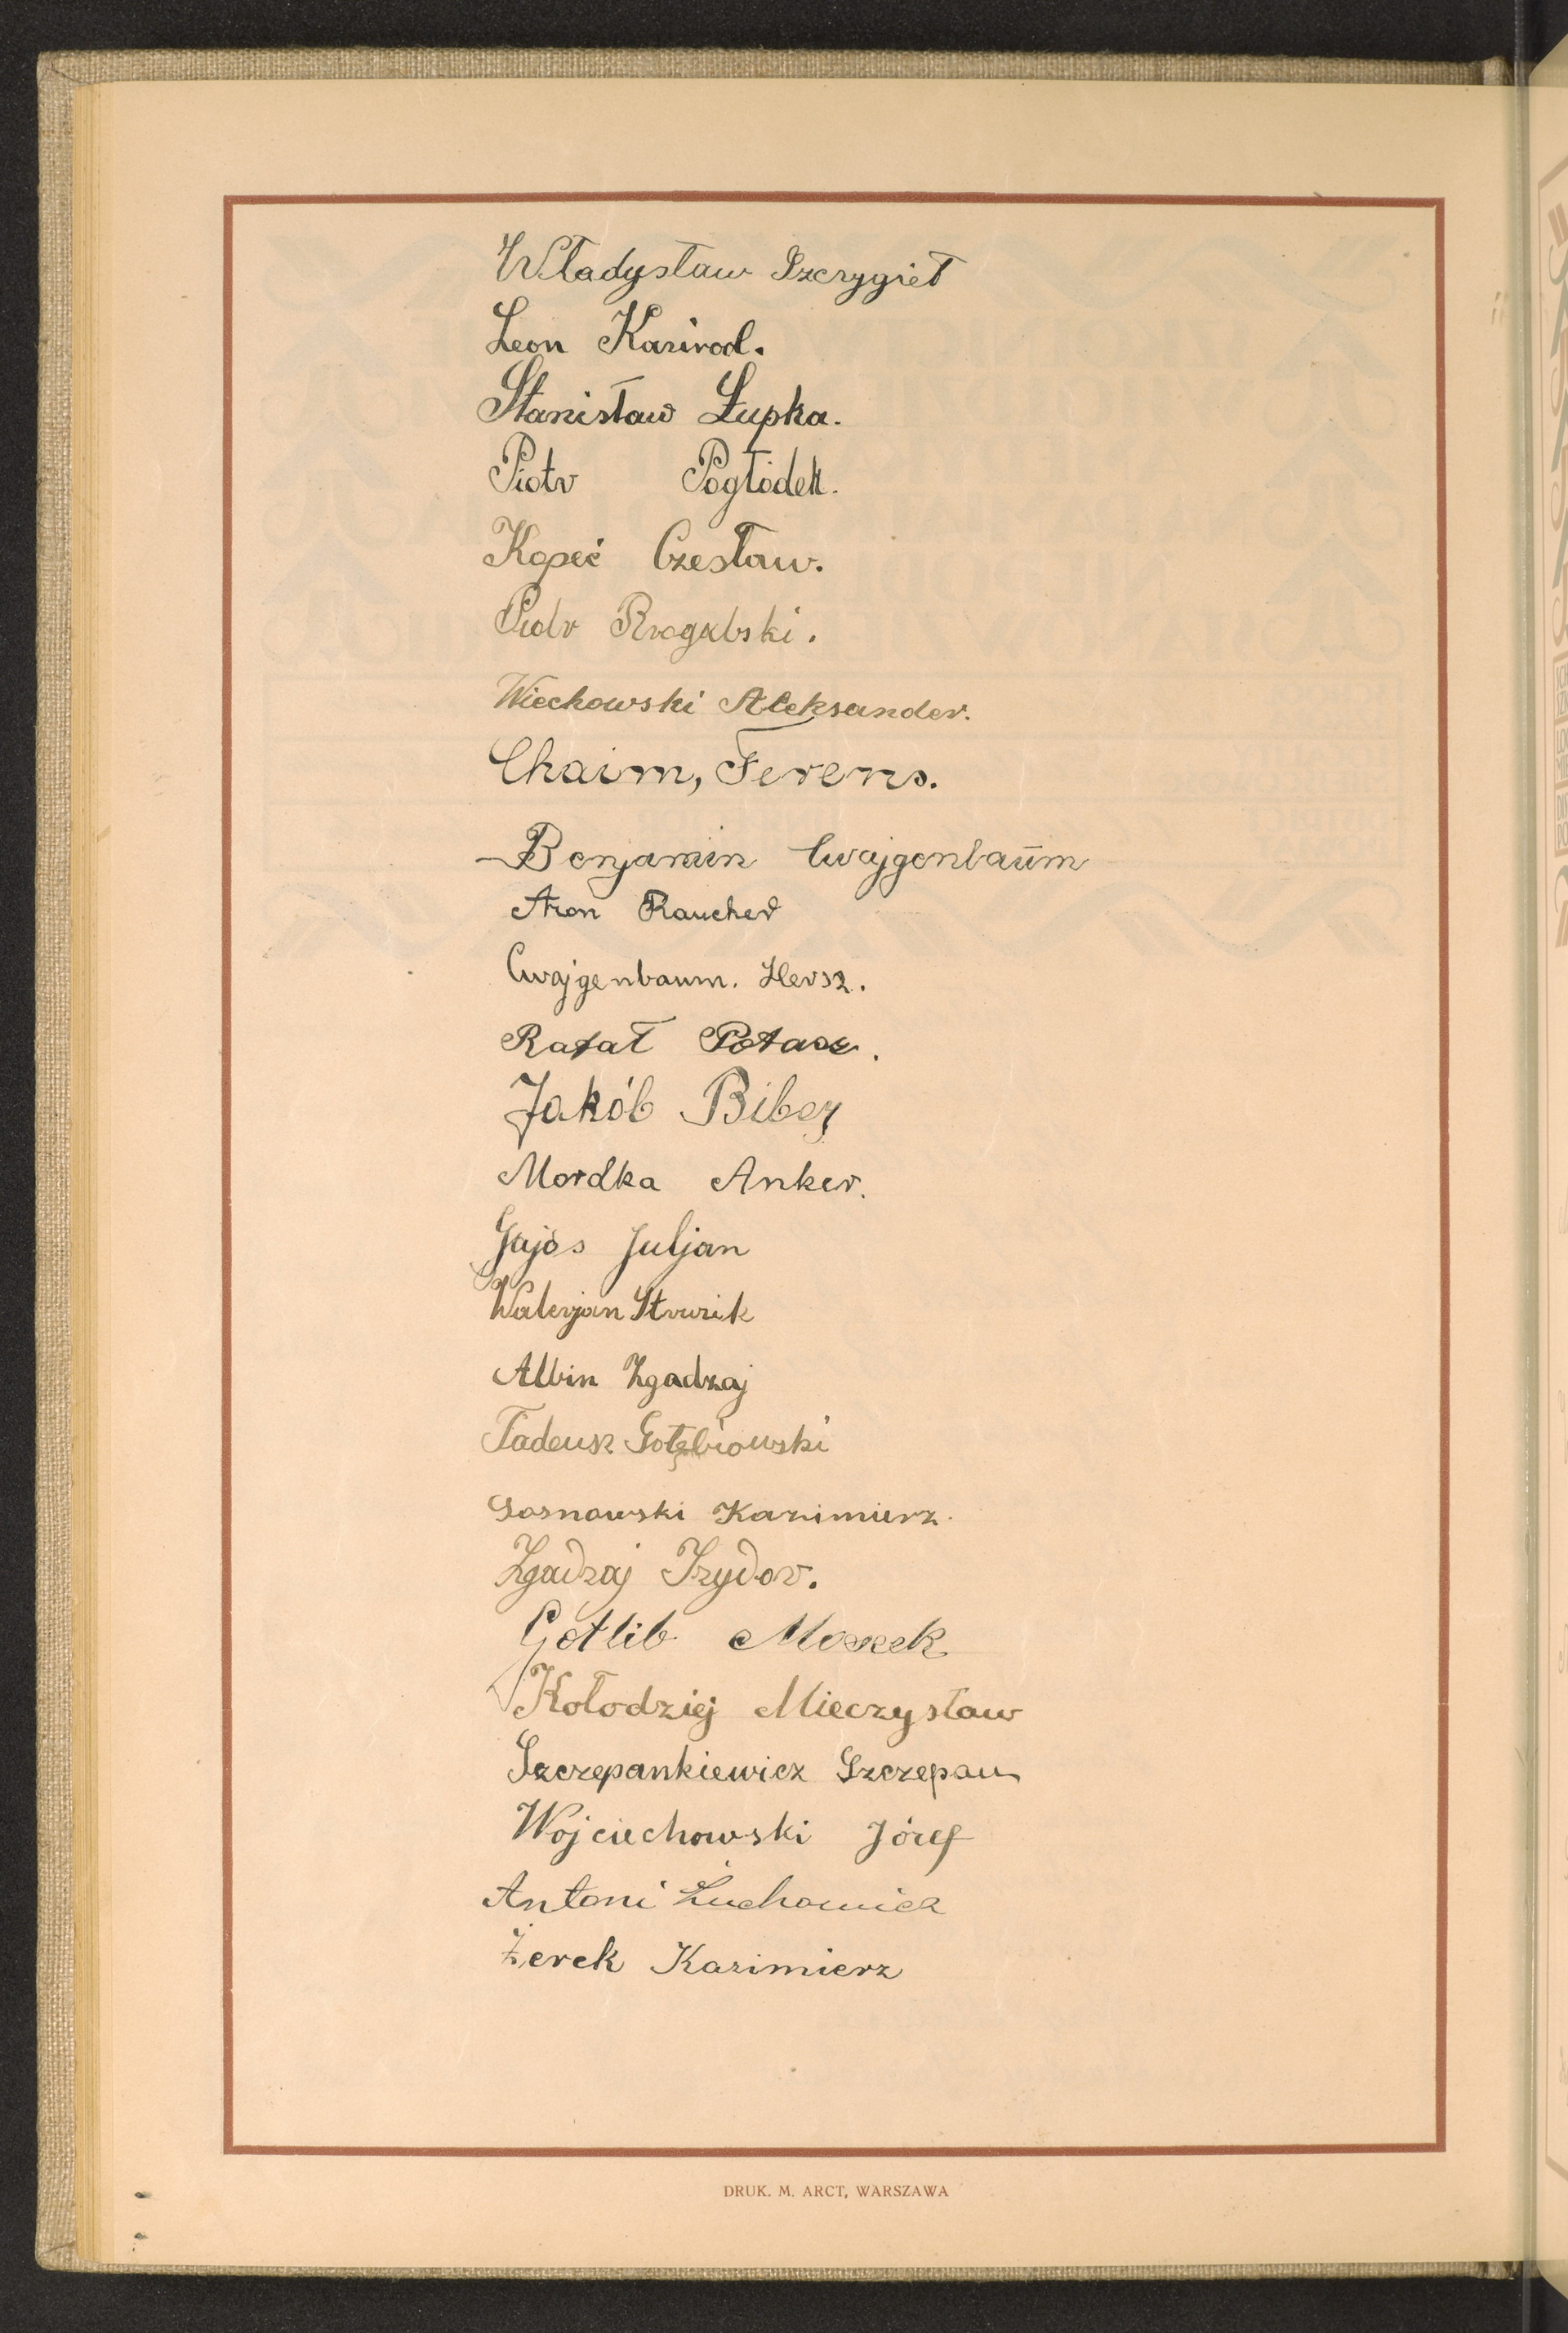 Władysław Szczygieł
Leon Kazirod.
Stanisław Łupka.
Piotr Pogłódek.
Kopeć Czesław.
Piotr
Wiechowski Aleksander.
Chaim, Ferens.
Benjamin Cwajgenbaūm
Aron Raucher
Cwajgenbaum. Hersz.
Rafał Potasz.
Jakób Biber
Mordka Anker.
Gajos Juljan
Walerjan Struzik
Albin Zgadzaj
Tadeusz Gołębiowski
Sosnowski Kazimierz.
Zgadzaj Izydor.
Gotlib Moszek
Kołodziej Mieczysław
Szczepankiewicz Szczepan
Wojciechowski Józef
Antoni Żuchowicz
Żerek Kazimierz
DRUK. M. ARCT, WARSZAWA